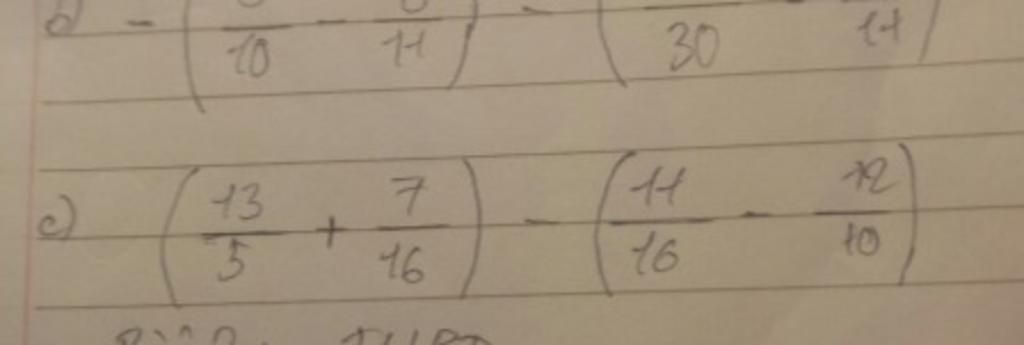 b) - ( /10 - /11 ) - ( /30 - /11 )
c) (13/5 + 7/16) - (11/16 - 12/10)